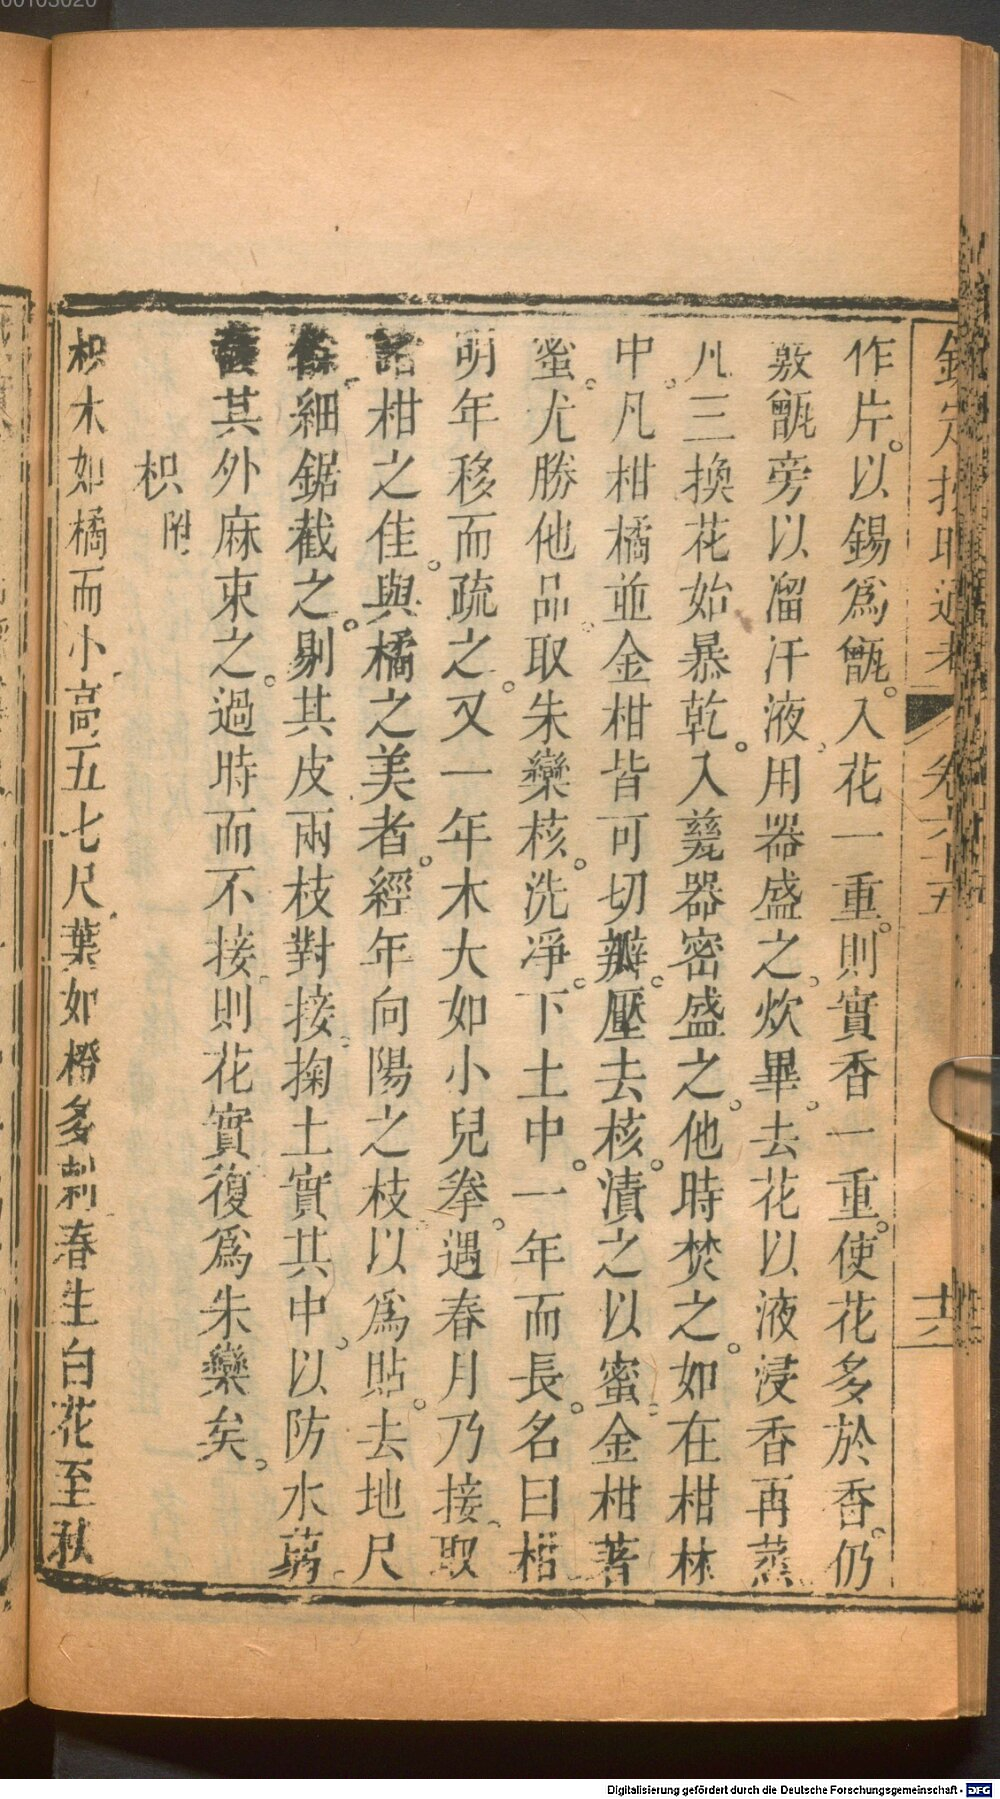 00103020
欽定授時通考 卷六十五 十六
作片。以錫爲甑。入花一重。則實香一重。使花多於香。仍
敷甑旁以溜汗液、用器盛之、炊畢。去花以液浸香再蒸
凡三換花始暴乾。入甆器密盛之。他時焚之。如在柑林
中。凡柑橘並金柑皆可切瓣。壓去核。漬之以蜜。金柑著
蜜。尤勝他品。取朱欒核。洗凈。下土中。一年而長。名曰柑
明年移而疏之。又一年木大如小兒拳。遇春月乃接、取
諸柑之佳。與橘之美者。經年向陽之枝以爲貼。去地尺
細鋸截之。剔其皮兩枝對接。掬土實其中、以防水蒻
其外麻束之。過時而不接、則花實復爲朱欒矣。
枳附
枳木如橘而小、高五七尺、葉如橙多刺春生白花至秋
Digitalisierung gefördert durch die Deutsche Forschungsgemeinschaft - DFG